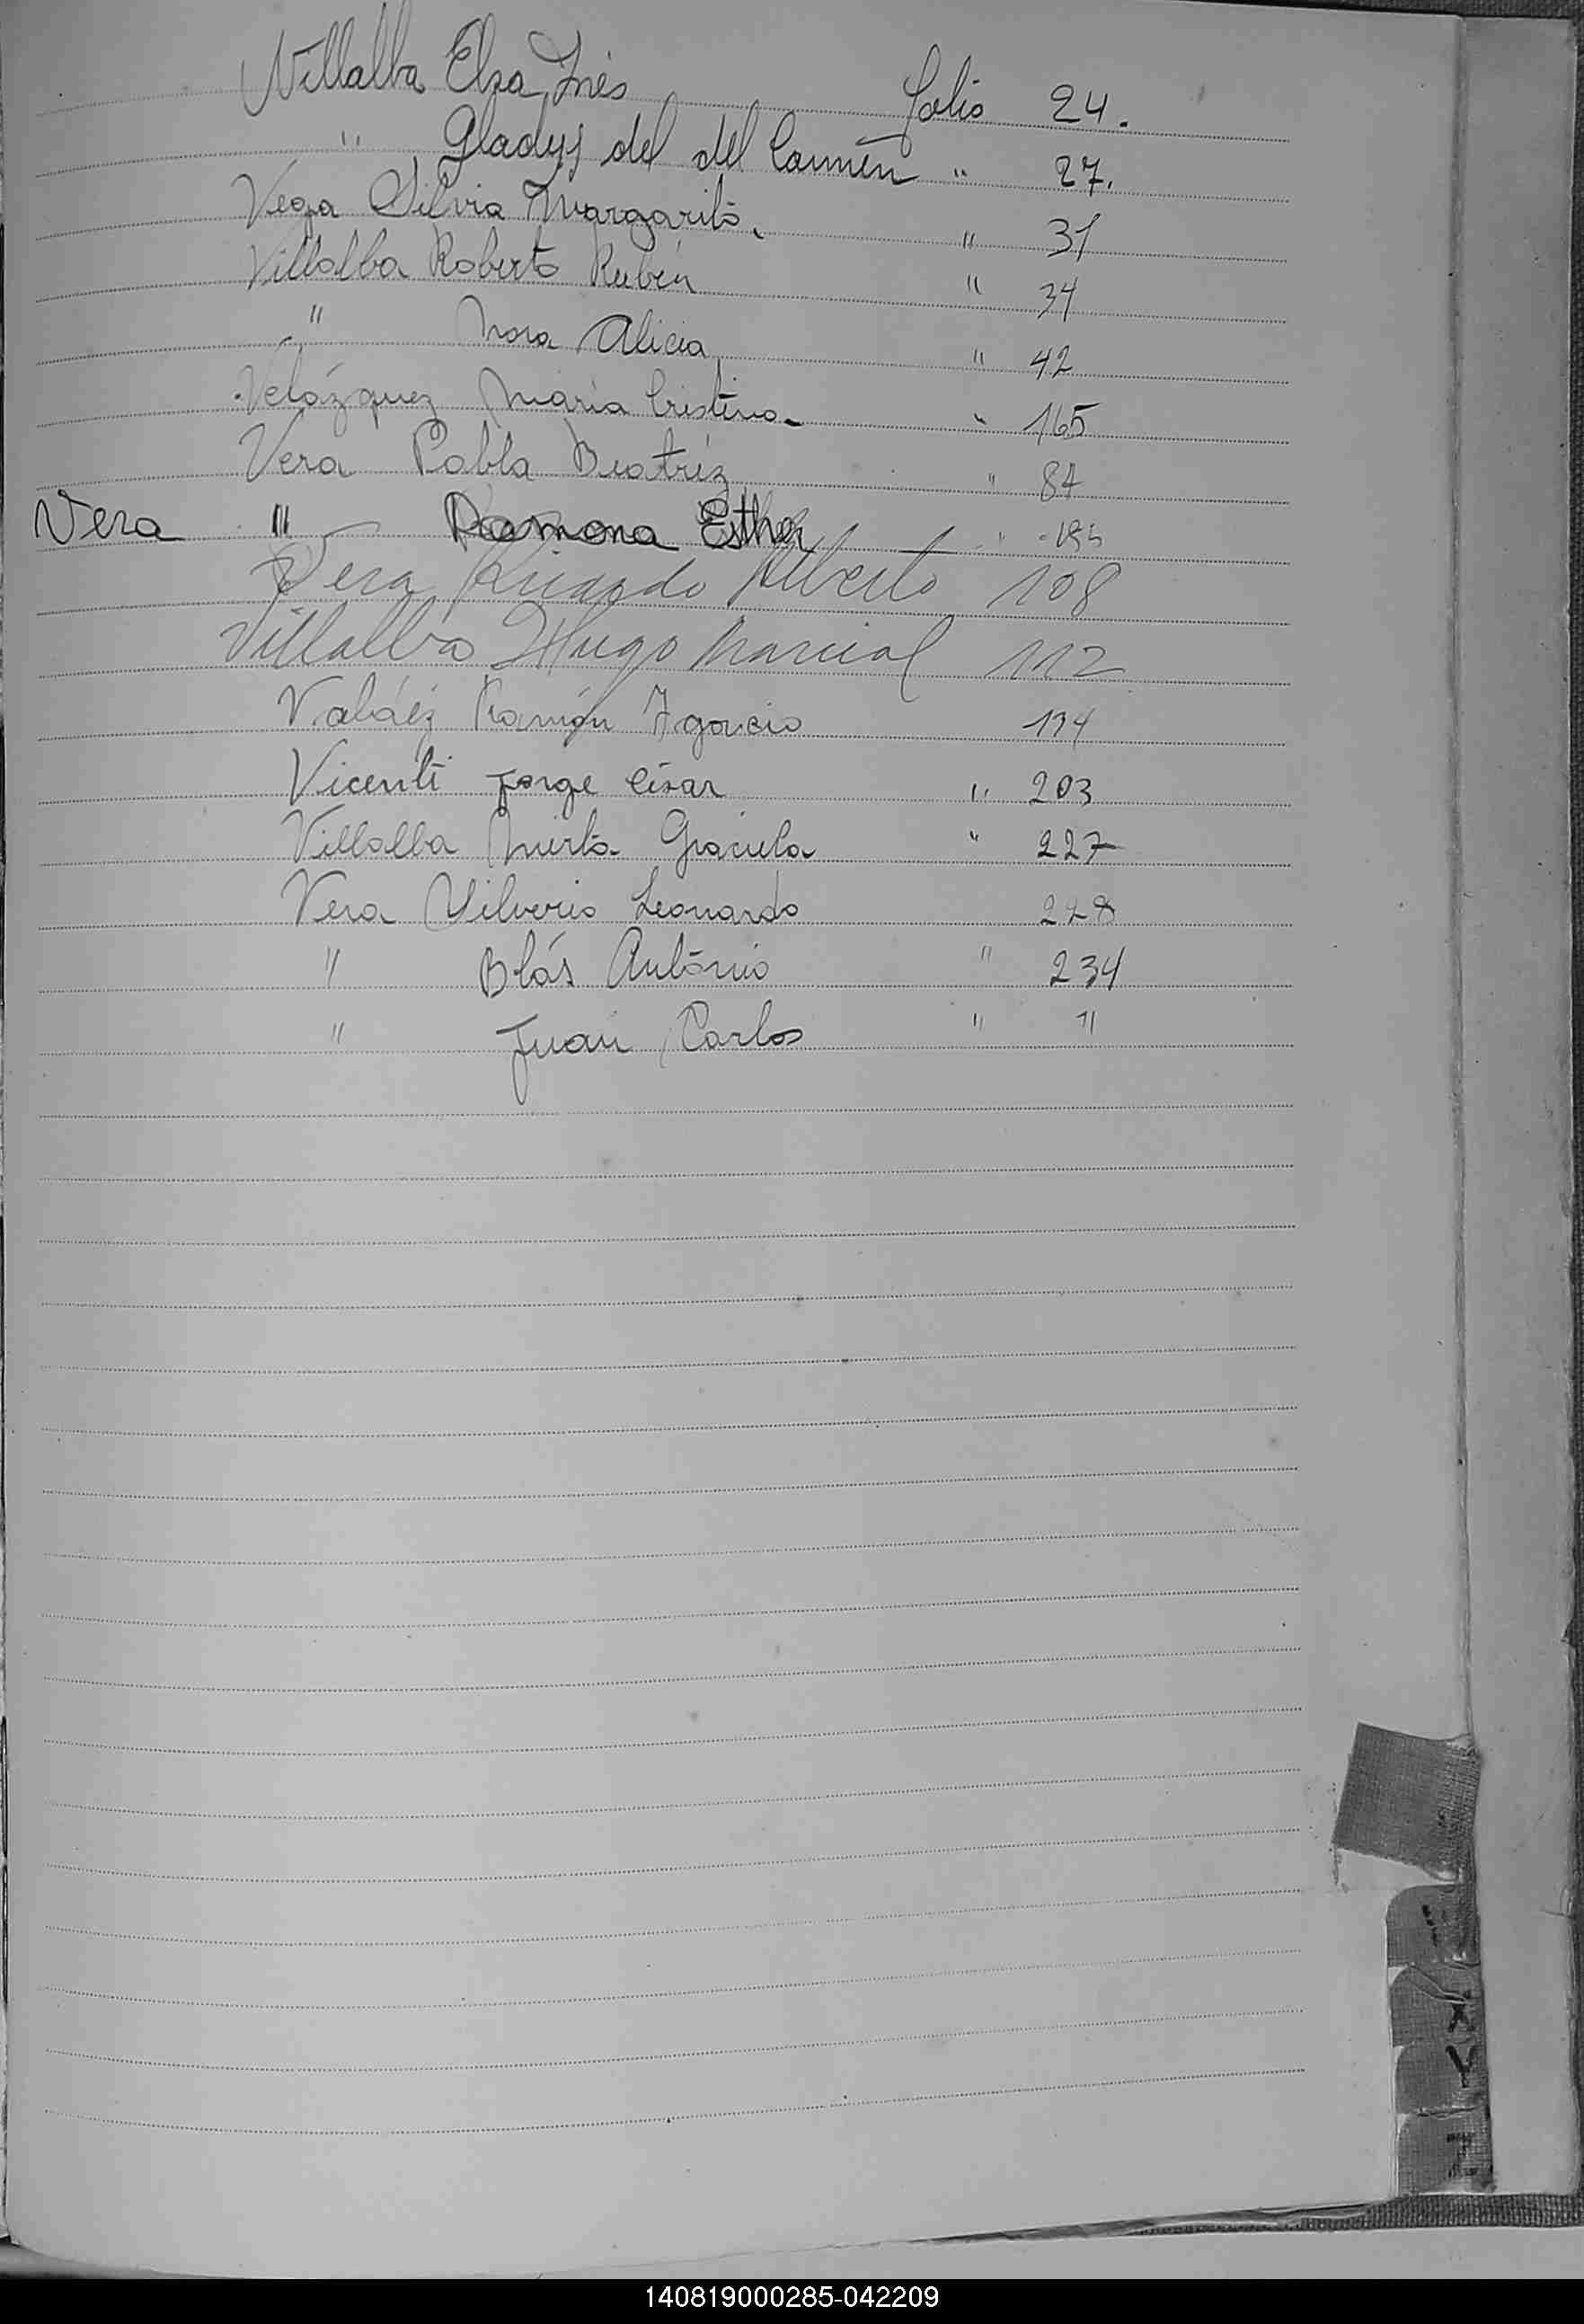 Villalba Elsa Inés folio 24.
" Gladys del del Carmen " 27.
Vega Silvia Margarita. " 31
Villalba Roberto Rubén " 34
" Nora Alicia " 42
Velázquez María Cristina " 165
Vera Pabla Beatríz " 87
Vera " Ramona Esther "
Vera Ricardo Alberto 108
Villalba Hugo Marcial 112
Ramón 194
Vicenti Jorge César " 203
Villalba Mirta Graciela " 227
Vera Silverio Leonardo 228
" Blás António " 234
" Juan Carlos " "
X
Y
Z
140819000285-042209